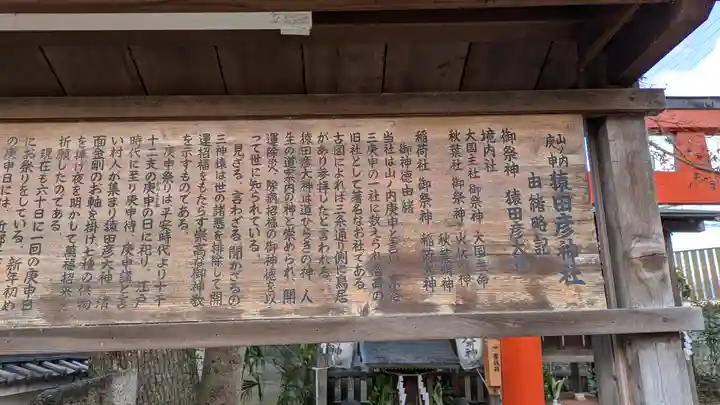 山ノ内
庚申
猿田彦神社
由緒略記
御祭神 猿田彦大神
境内社
大国主社 御祭神 大国主命
秋葉社 御祭神
秋葉明神
稲荷社 御祭神 稲荷大神
御神徳由緒
当社は山ノ内庚申と言い
三庚申の一社に数えられ
旧社として著名なお社である。
古図によれば三条通り側に鳥居
があり参拝したと言われる。
猿田彦大神は道ひらきの神、人
生の道案内の神と崇められ、開
運除災、除病招福の御神徳を以
って世に知られている。
見ざる、言わざる、聞かざるの
三神猿は世の諸悪を排除して開
運招福をもたらす崇高な御神教
を示すものである。
庚申祭りは平安時代より十干
十二支の庚申の日に祀り、江戸
時代に至り庚申待、庚申講と言
い村人が集まり猿田彦大神、青
面金剛のお軸を掛け七種の供物
を捧げ夜を明かして萬福招来
祈願したのである。
現在も六十日に一回の庚申日
にお祭りをしている。新年初め
の庚申日には、